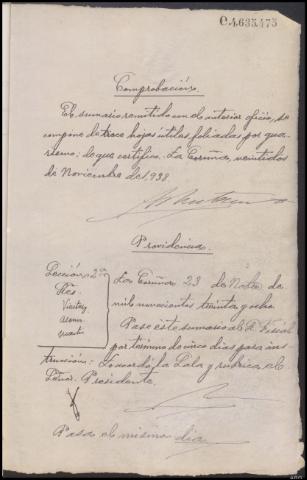 C4.635.475
Comprobación.
El sumario remitido con el anterior oficio, se
compone de trece hojas útiles foliadas por gua-
rismo: de que certifico. La Coruña, veintidos
de Noviembre de 1.938
Providencia.
Sección 2ª
La Coruña 23 de Nobre. de
mil novecientos treinta y ocho
Pase este sumario al Sr. Fiscal
por término de cinco días para ins-
trucción: Lo acordó la Sala y rubrica el
Señor Presidente.
Pasa el mismo dia